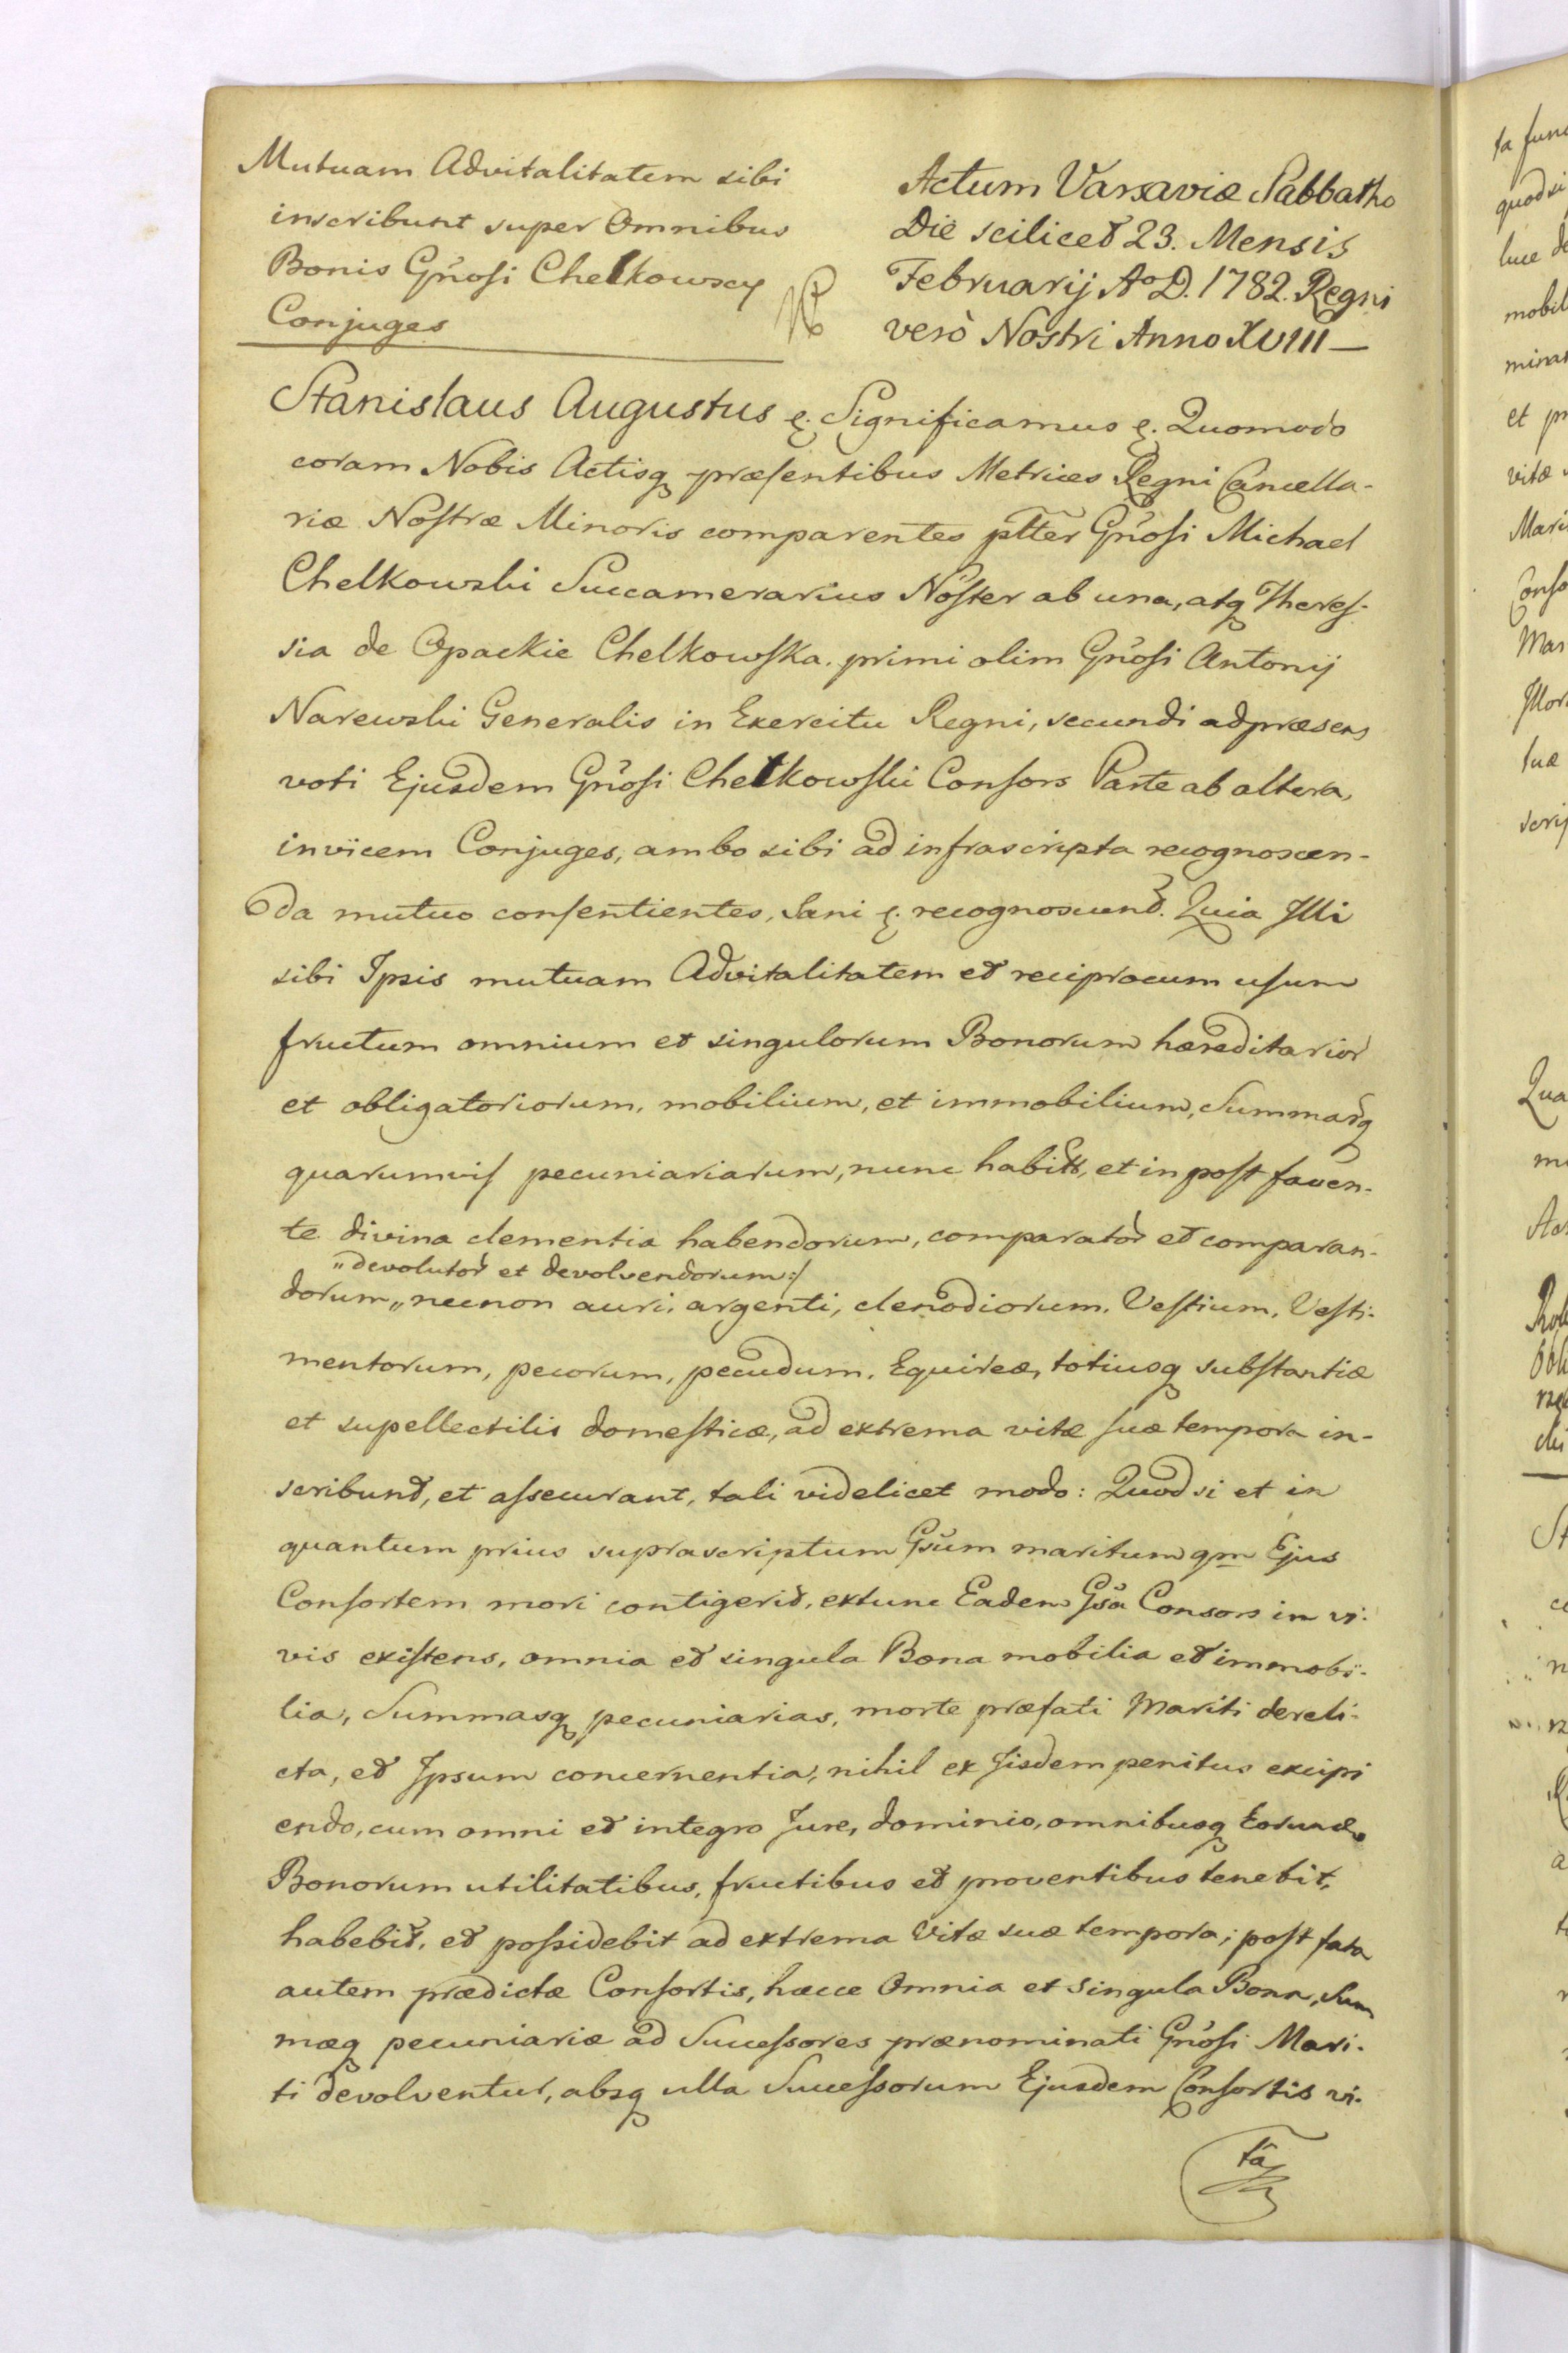 Mutuam Advitalitatem sibi
inscribunt super Omnibus
Bonis Gn̄osi Chelkowscy
Conjuges
Actum Varsaviæ Sabbatho
Die scilicet 23. Mensis
Februarij Ao D. 1782. Regni
verò Nostri Anno XVIII —
Stanislaus Augustus &. Significamus &. Quomodo
coram Nobis Actisq præsentibus Metrices Regni Cancella-
riæ Nostræ Minoris comparentes pltter Gn̄osi Michael
Chelkowski Succamerarius Noster ab una, atq Theres-
sia de Opackie Chelkowska. primi olim Gn̄osi Antonij
Narewski Generalis in Exercitu Regni, secundi ad præsens
voti Ejusdem Gn̄osi Chelkowski Consors Parte ab altera,
invicem Conjuges, ambo sibi ad infrascripta recognoscen-
da mutuo consentientes, Sani &. recognoscund. Quia Illi
sibi Ipsis mutuam Advitalitatem et reciprocum usum
fructum omnium et singulorum Bonorum hæreditarior
et obligatoriorum, mobilium, et immobilium, Summarq
quarumvis pecuniariarum, nunc habitt, et in post faven-
te divina clementia habendorum, comparator et comparan-
„devolutor et devolvendorum:/
dorum„ necnon auri, argenti, clenodiorum, Vestium, Vesti-
mentorum, pecorum, pecudum, Equireæ, totiusq substantiæ
et supellectilis domesticæ, ad extrema vitæ suæ tempora in-
scribunt, et assecurant, tali videlicet modo: Quod si et in
quantum prius suprascriptum Gsum maritum qm Ejus
Consortem mori contigerit, extunc Eadem Gsa Consors in vi-
vis existens, omnia et singula Bona mobilia et immobi-
lia, Summasq pecuniarias, morte præfati Mariti dereli-
cta, et Ipsum concernentia, nihil ex Iisdem penitus excipi
endo, cum omni et integro Jure, dominio, omnibusq Eorund
Bonorum utilitatibus, fructibus et proventibus tenebit,
habebit, et possidebit ad extrema Vitæ suæ tempora; post fata
autem prædictæ Consortis, hæcce Omnia et singula Bona, Sum
mæq pecuniariæ ad Successores prænominati Gn̄osi Mari-
ti devolventur, absq ulla Successorum Ejusdem Consortis vi-
ta